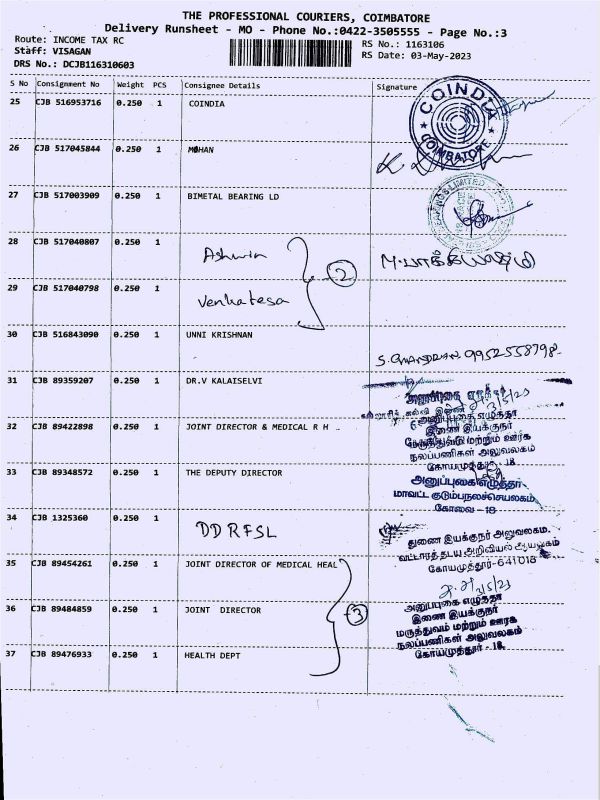 THE PROFESSIONAL COURIERS, COIMBATORE
Delivery Runsheet - MO - Phone No.:0422-3505555 - Page No.:3
Route: INCOME TAX RC
RS No.: 1163106
Staff: VISAGAN
RS Date: 03-May-2023
DRS No.: DCJB116310603
S No Consignment No Weight PCS Consignee Details Signature
25 CJB 516953716 0.250 1 COINDIA
COINDIA
COIMBATORE
26 CJB 517045844 0.250 1 MOHAN
27 CJB 517003909 0.250 1 BIMETAL BEARING LD
28 CJB 517040807 0.250 1
Ashwin
2
29 CJB 517040798 0.250 1
Venkatesa
30 CJB 516843090 0.250 1 UNNI KRISHNAN
9952558798
31 CJB 89359207 0.250 1 DR.V KALAISELVI
32 CJB 89422898 0.250 1 JOINT DIRECTOR & MEDICAL R H ..
அனுப்புகை எழுத்தர்
இணை இயக்குநர்
மருத்துவம் மற்றும் ஊரக
நலப்பணிகள் அலுவலகம்
கோயமுத்தூர் - 18
33 CJB 89348572 0.250 1 THE DEPUTY DIRECTOR
அனுப்புகை எழுத்தர்
மாவட்ட குடும்பநலச்செயலகம்
கோவை - 18
34 CJB 1325360 0.250 1
DDRFSL
துணை இயக்குநர் அலுவலகம்.
வட்டாரத் தடய அறிவியல் ஆய்வகம்
கோயமுத்தூர்-641018
35 CJB 89454261 0.250 1 JOINT DIRECTOR OF MEDICAL HEAL
36 CJB 89484859 0.250 1 JOINT DIRECTOR
3
அனுப்புகை எழுத்தர்
இணை இயக்குநர்
மருத்துவம் மற்றும் ஊரக
நலப்பணிகள் அலுவலகம்
கோயமுத்தூர் - 18.
37 CJB 89476933 0.250 1 HEALTH DEPT